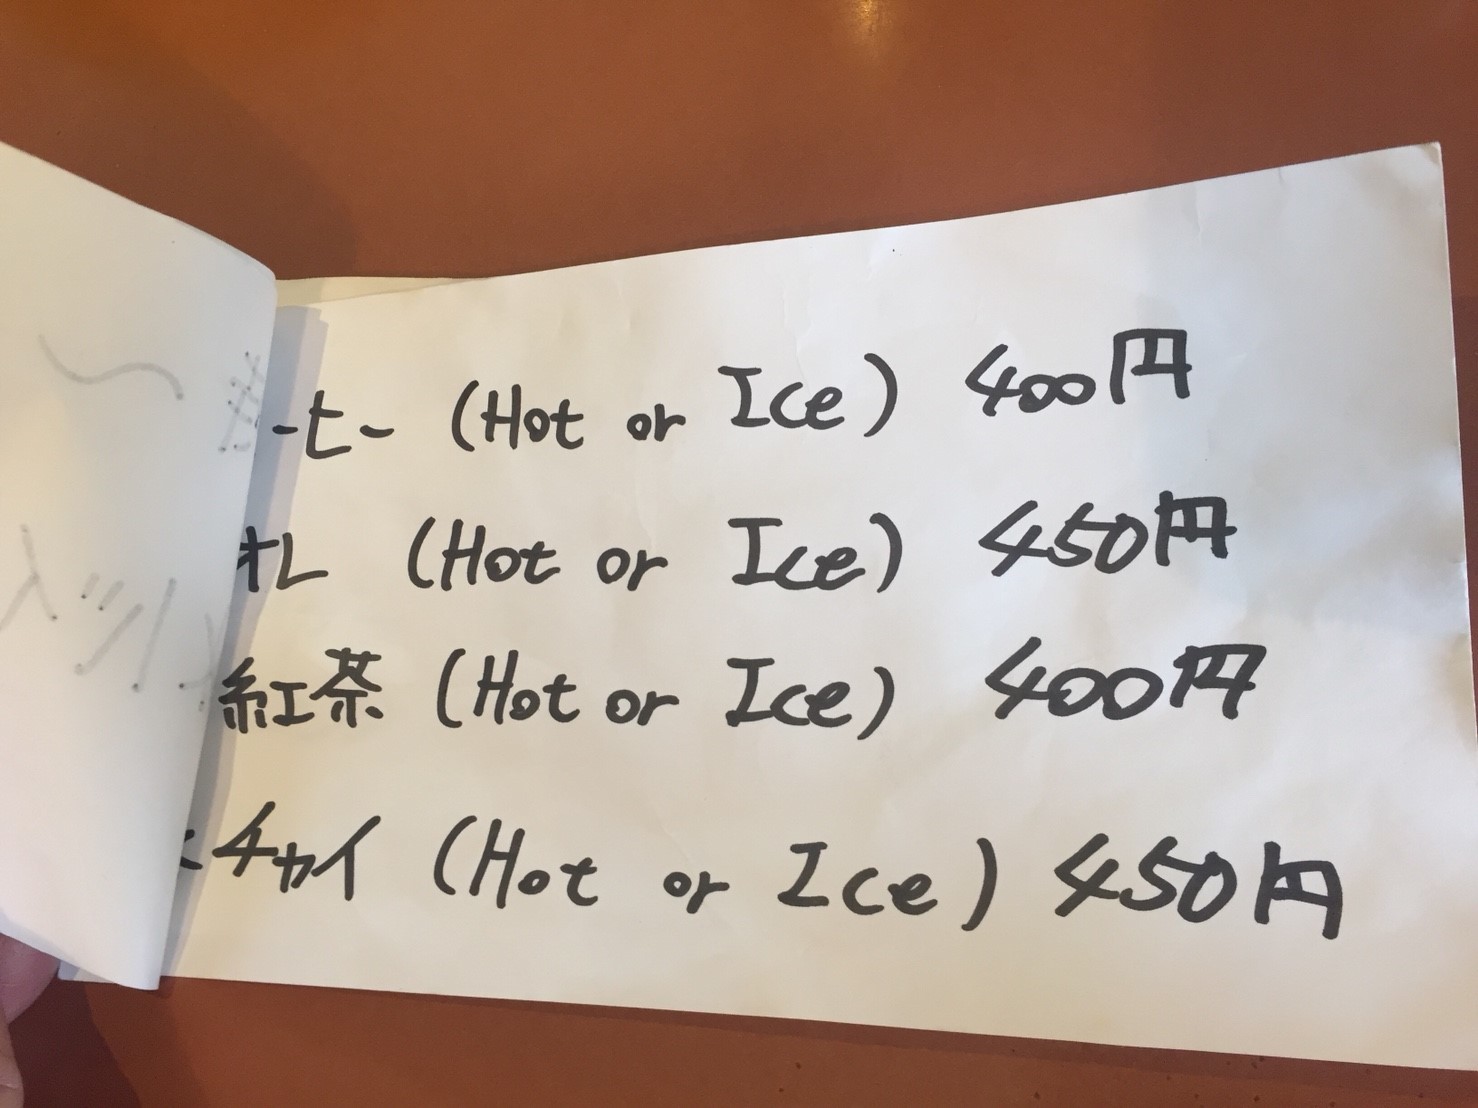 ーヒー (Hot or Ice) 400円
オレ (Hot or Ice) 450円
紅茶 (Hot or Ice) 400円
チャイ (Hot or Ice) 450円